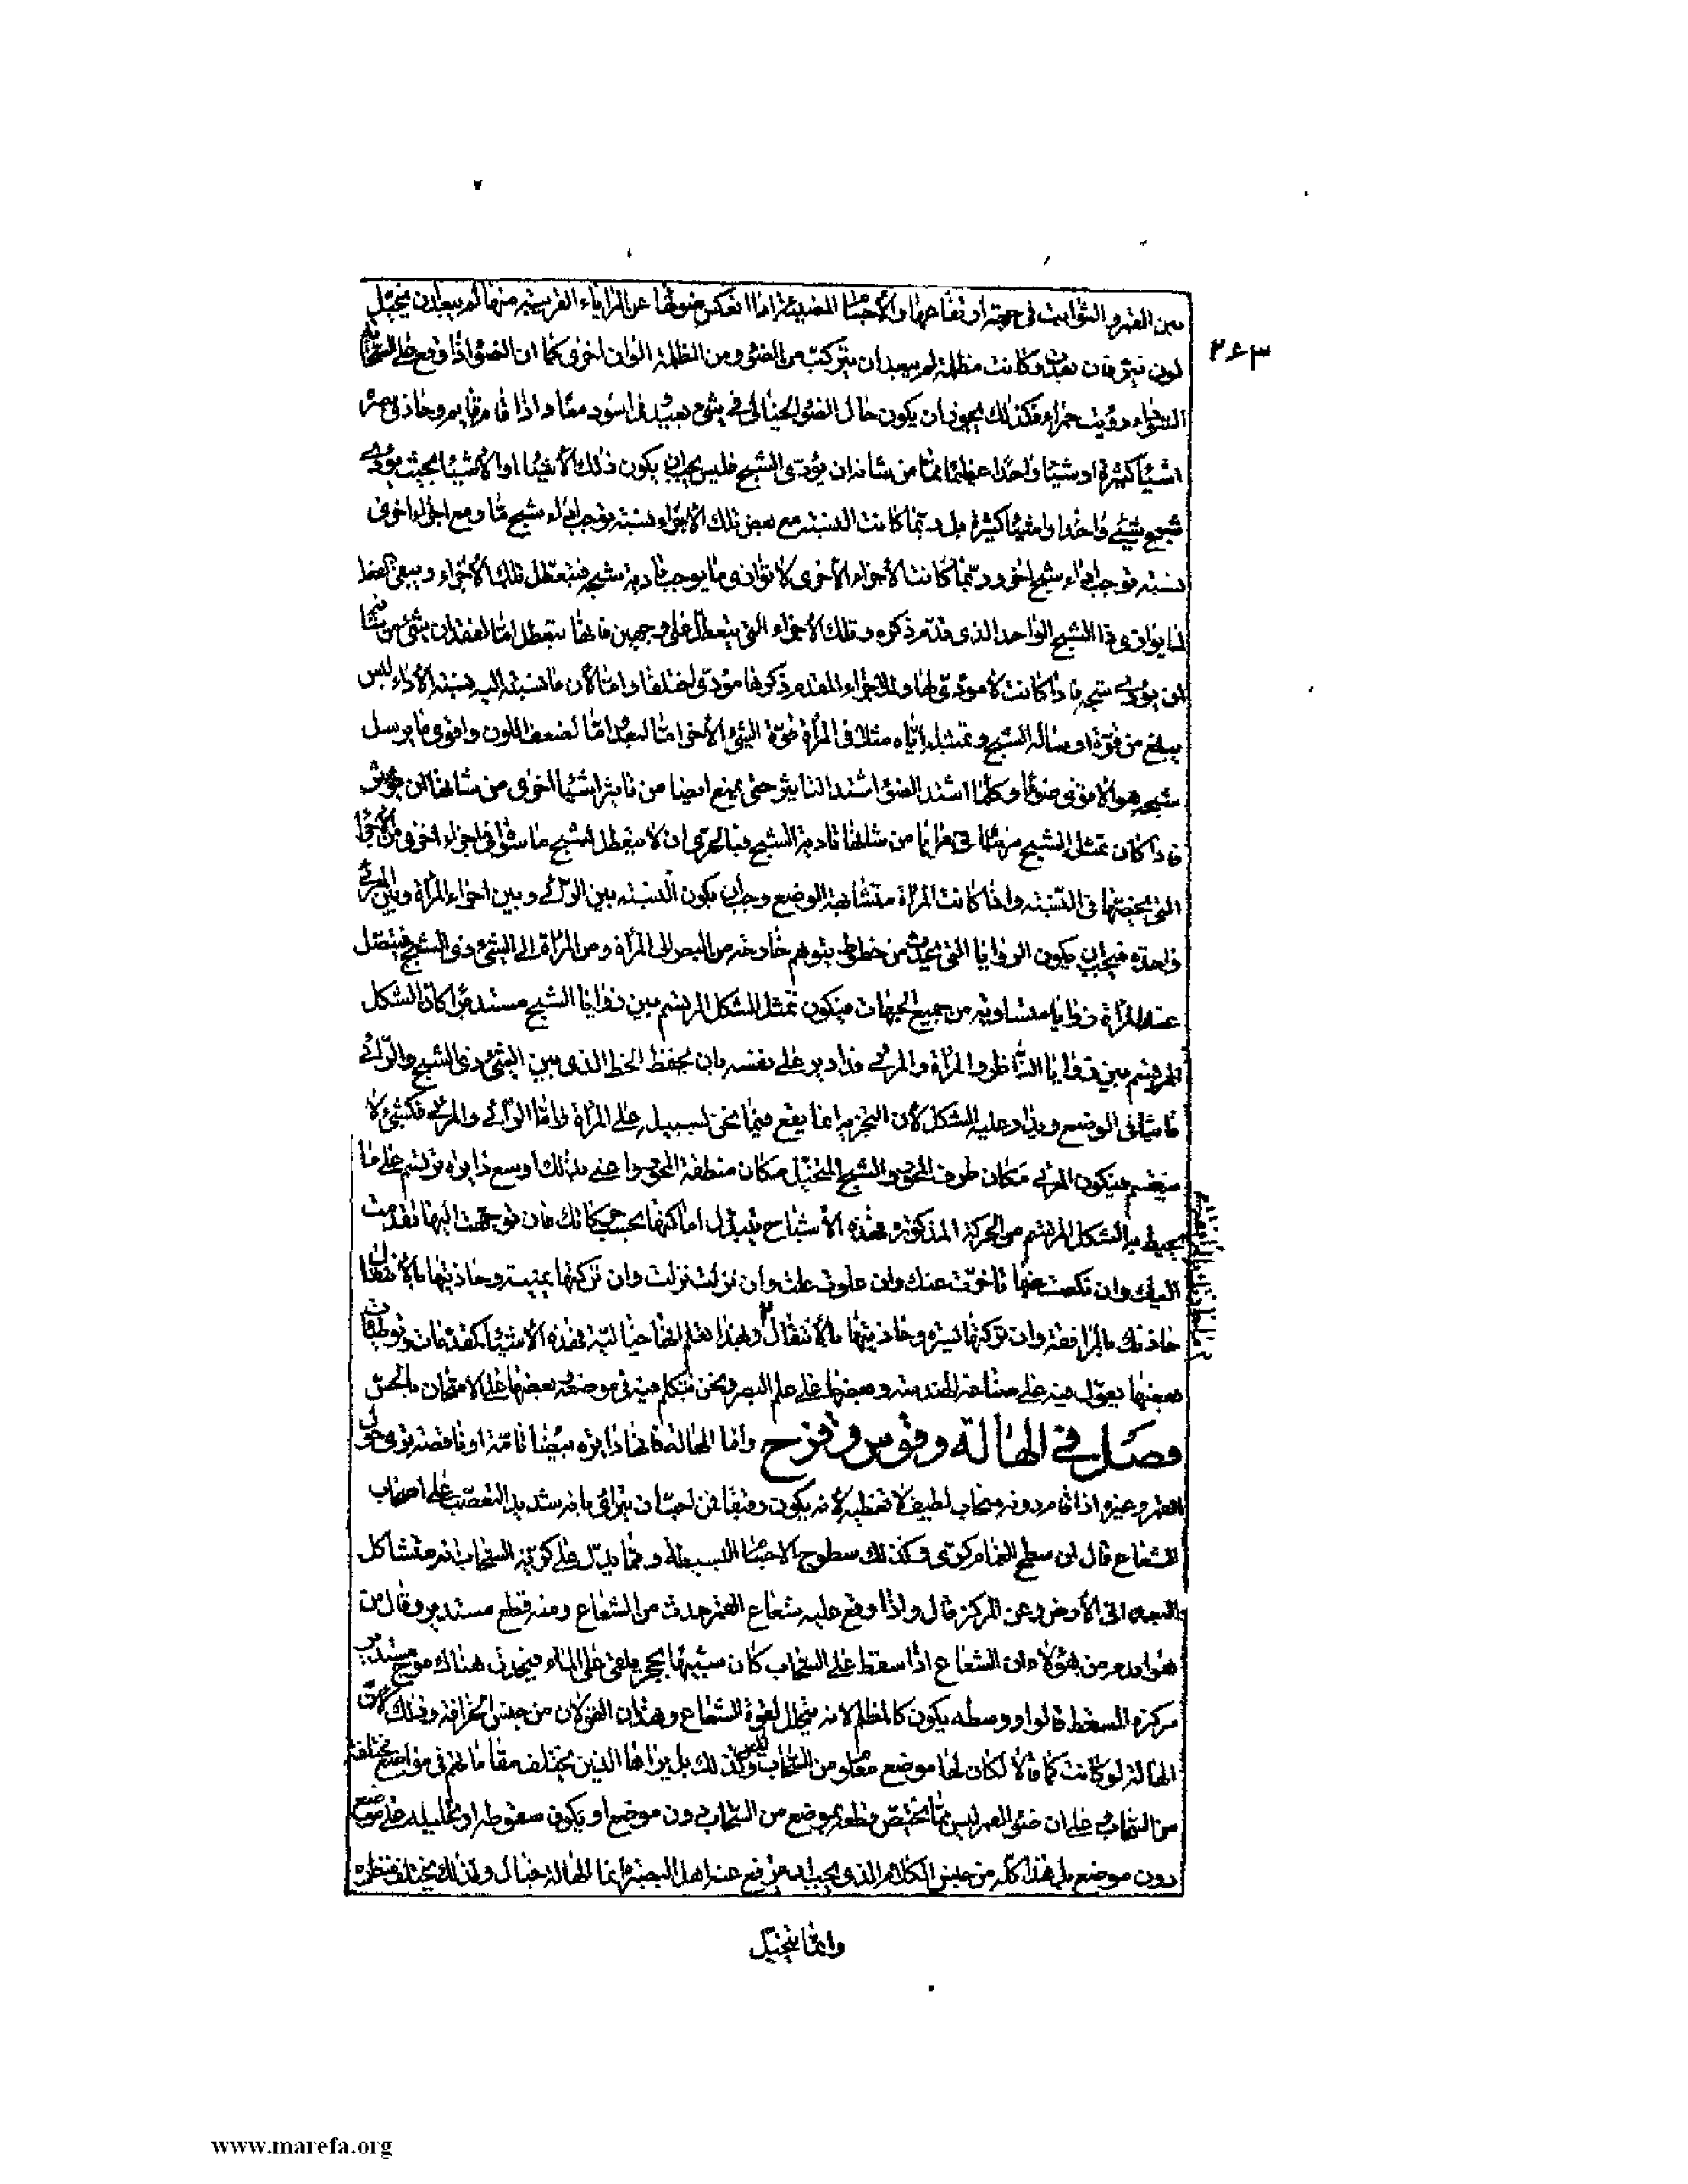 ٢٦٣
لون نير فان بعدت وكانت مظلمة لم يبعد ان يتركب من الضوء ومن الظلمة الوان اخرى كما ان الضوء اذا وقع على السحاب
السوداء رؤيت حمراء فكذلك يجوز ان يكون حال الضوء الخيالي في شيء بعيد
اشياء كثيرة او شيئا واحدا عظيما مما من شانه ان يؤدى الشبح فليس يجب ان يكون ذلك الأشياء او الأشياء بحيث يؤدى
شبح شيء واحدا واشياء كثيرة بل ربما كانت النسبة مع بعض تلك الاجزاء نسبة توجب اداء شبح ما ومع اجزاء اخرى
نسبة توجب اداء شبح اخر وربما كانت الأجزاء الأخرى لا توازى ما يوجب تادية شبحه فتتعطل تلك الأجزاء ويبقى
الشبح الواحد الذى قدم ذكره وتلك الأجزاء التى يتعطل على وجهين فانها تتعطل اما لفقدان شيء من شانه
ان يؤدى شبحه فاذا كانت لا مؤدى لها وللاجزاء المقدم ذكرها مؤدى مختلفا واما لأن ما نسبته اليه نسبة الأداء ليس
يبلغ من قوة ارساله الشبح وتمثيله اياه مثلك فى المرأة قوة الشئ الأخر اما لبعد اما لضعف اللون واقوى ما يرسل
شبحه هو الاقوى ضوءا وكلما اشتد الضوء اشتد التاثير حتى يمنع ايضا من تاثير اشياء اخرى من شانها ان تؤثر
فاذا كان تمثل الشبح مرئيا فى مرايا من شانها تادية الشبح فبالحرى ان لا يتعطل الشبح
التى يخصها فى النسبة واذا كانت المرأة متشابهة الوضع وجب ان يكون النسبة بين الرائى وبين اجزاء المرأة وبين المرئى
واحدة فيجب ان يكون الزوايا التى تحدث من خطوط يتوهم خارجة من البصر الى المرأة ومن المرأة الى الشئ ذى الشبح فيتصل
عند المرأة زوايا متساوية من جميع الجهات فيكون تمثل الشكل المرتسم من زوايا الشبح مستديرا كان الشكل
المرتسم من زوايا الناظر والمرأة والمرئى قد ادير على نفسه بان يحفظ الخط الذى بين الشئ ذى الشبح والرائى
ثابتا فى الوضع ويدار عليه الشكل لأن التحزيم انما يقع فيما نحن لسبيله على المرأة واما الرائى والمرئى فكشئ لا
ينقسم فيكون المرئى مكان طرف المحور والشبح المتخيل مكان منطقة المحور واعنى بذلك اوسع دايرة ترتسم على ما
يحيط به الشكل المرتسم من الحركة المذكورة وهذه الأشباح يتبدل اماكنها بحسب حركاتك فان توجهت اليها تقدمت
اليك وان نكصت عنها تاخرت عنك وان علوت علت وان نزلت نزلت وان تركتها يمنية وحاذيتها بالأنتقال
حاذتك بالمرافقة وان تركتها يسرة وحاذيتها بالأنتقال وبهذا تعلم انها خيالية فهذه الأشياء كمقدمات وتوطئات
بعضها يعول فيه على صناعة الهندسة وبعضها على علم البصر ونحن نتكلم فيه فى موضعه وبعضها على الامتحان بالحس
فصل في الهالة وقوس وقزح واما الهالة فانها دايرة بيضاء تامة او ناقصة ترى حول
القمر وغيره اذا قام دونه سحاب لطيف لا تغطيه لأنه يكون رقيقا
الشعاع قال ان سطح الغمام كرى وكذلك سطوح الاجسام البسيطة ومما يدل على كرية السحاب انه متشاكل
البعد الى الأرض وعن المركز قال واذا وقع عليه شعاع القمر حدث من الشعاع ومنه قطع مستدير وقال من
هو ابعد من هؤلاء ان الشعاع اذا سقط على السحاب كان شبيها بحجر يلقى على الماء فيحدث هناك موج مستدير
مركزه المسقط قالوا ووسطه يكون كالمظلم لانه يتحلل لقوة الشعاع وهذان القولان من جنس الخرافة وذلك لأن
الهالة لو كانت كما قالا لكان لها موضع معلوم من السحاب وليس كذلك بل يراها الذين يختلف مقاماتهم فى مواضع مختلفة
من السحاب على ان ضوء القمر ليس مما يختص وقوعه بموضع من السحاب دون موضع او يكون سقوطه او تحليله على موضع
دون موضع بل هذا كله من جنس الكلام الذى يجب ان يترفع عنه اهل البصيرة وانما الهالة خيال ولذلك يختلف منظره
وانما يتخيل
www.marefa.org